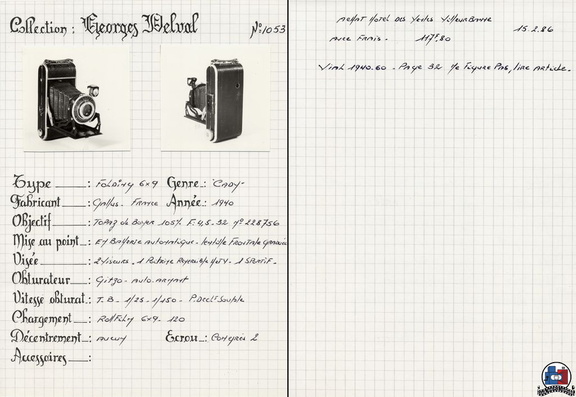 Collection : Georges Delval N° 1053
Type : Folding 6x9 Genre : "Cady"
Fabricant : Gallus. France Année : 1940
Objectif : Topaz de Boyer 105% F. 4,5-32 n° 228756
Mise au point : Et Batterie automatique - Frontale
Visée : 2 Viseurs - 1 - 1 Sportif -
Obturateur : Gitzo - auto-armant
Vitesse obturat. : T. B - 1/25 - 1/150 - P. Decl! Souple
Chargement : Rollfilm 6x9 - 120
Décentrement : aucun Ecrou : Congrès 2
Accessoires :
Achat Hotel des Ventes Villeurbanne 15.2.86
avec Frais - 117,80
Vial 1940.60 - Page 32 Ne Figure Pas, lire article.